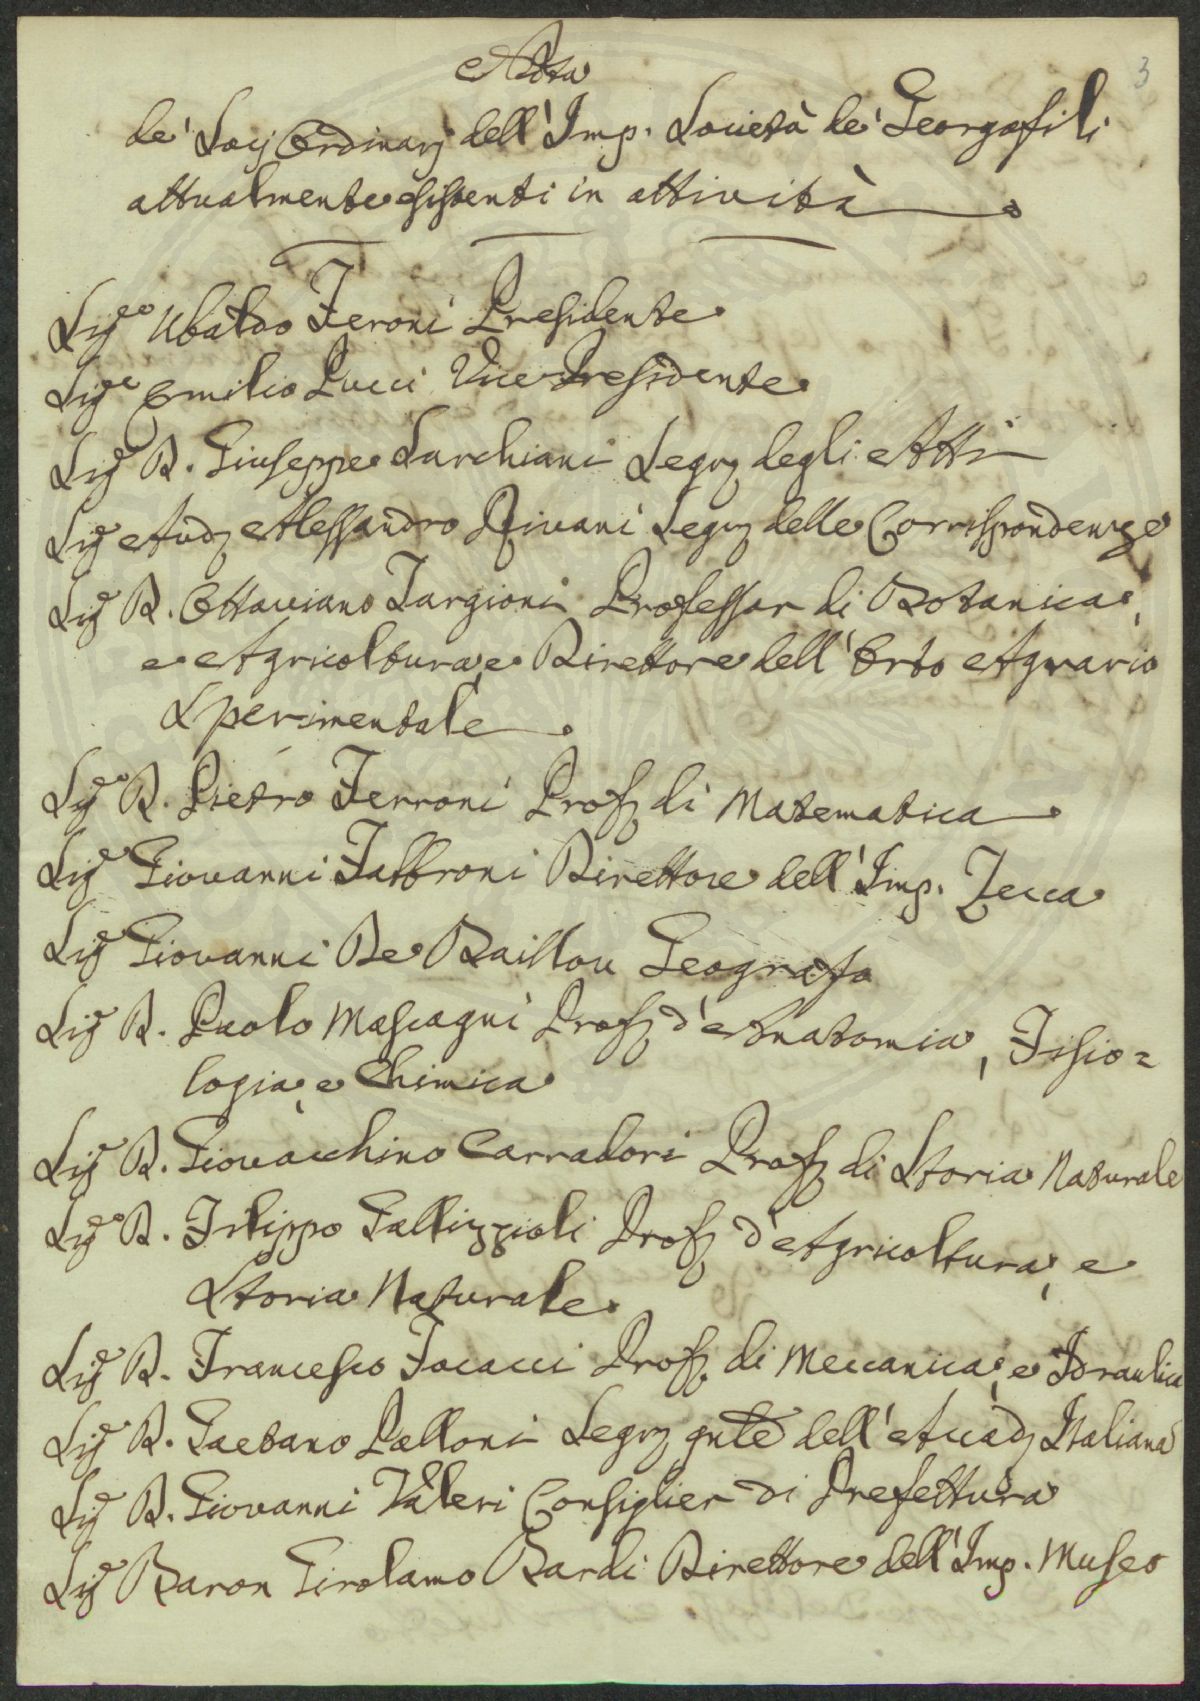 Nota
3
de' Socj Ordinarj dell'Imp. Società de' Georgofili
attualmente esistenti in attività
Sig.re Ubaldo Feroni Presidente
Sig.re Emilio Pucci Vice Presidente
Sig.re D. Giuseppe Sarchiani Segr. degli Atti
Sig.re Aud. Alessandro Rivani Segr. delle Corrispondenze
Sig.re D. Ottaviano Targioni Professor di Botanica,
e Agricoltura, e Direttore dell'Orto Agrario
Sperimentale
Sig.re D. Pietro Ferroni Prof. di Matematica
Sig.re Giovanni Fabbroni Direttore dell'Imp. Zecca
Sig.re Giovanni De Baillou Geografo
Sig.re D. Paolo Mascagni Prof. d'Anatomia, Fisio=
logia, e Chimica
Sig.re D. Giovacchino Carradori Prof. di Storia Naturale
Sig.re D. Filippo Gallizzioli Prof. d'Agricoltura, e
Storia Naturale
Sig.re D. Francesco Focacci Prof. di Meccanica, e Idraulica
Sig.re D. Gaetano Palloni Segr. gnle dell'Accad. Italiana
Sig.re D. Giovanni Valeri Consiglier di Prefettura
Sig.re Baron Girolamo Bardi Direttore dell'Imp. Museo